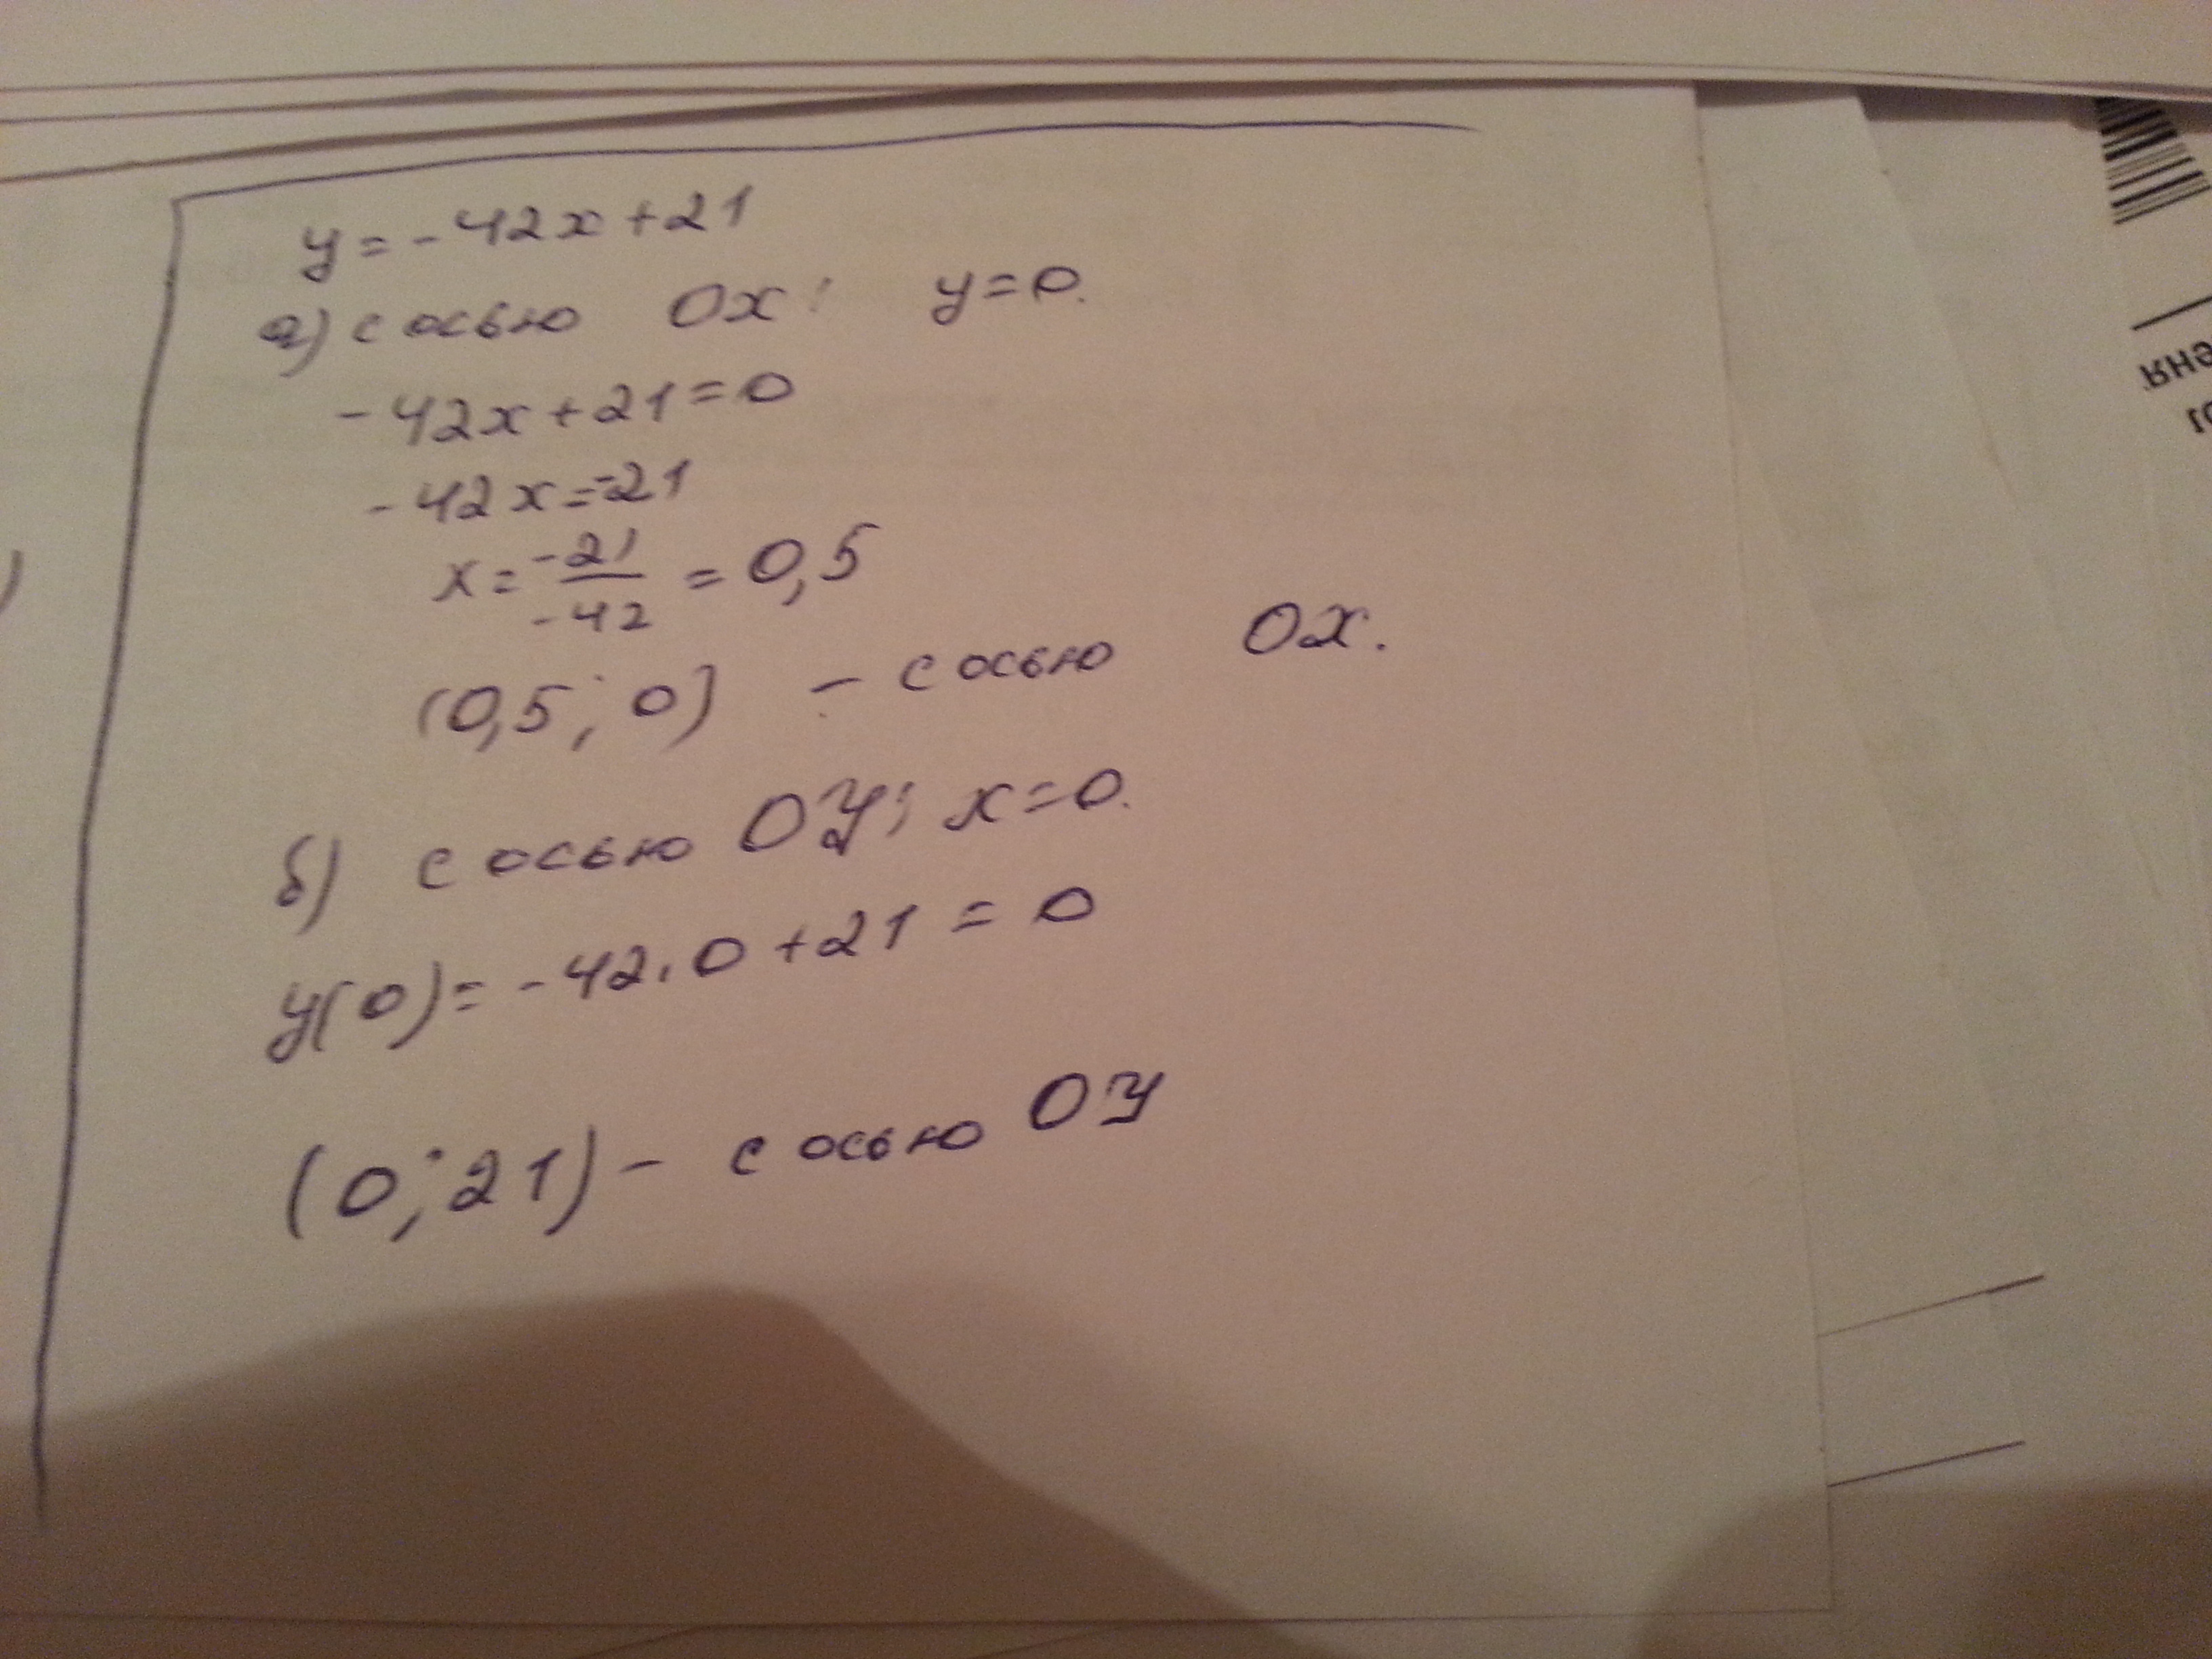 y = -42x + 21
а) с осью OX: y = 0.
-42x + 21 = 0
-42x = -21
x = -21/-42 = 0,5
(0,5; 0) - с осью OX.
б) с осью OY: x = 0.
y(0) = -42·0 + 21 = 0
(0; 21) - с осью OY